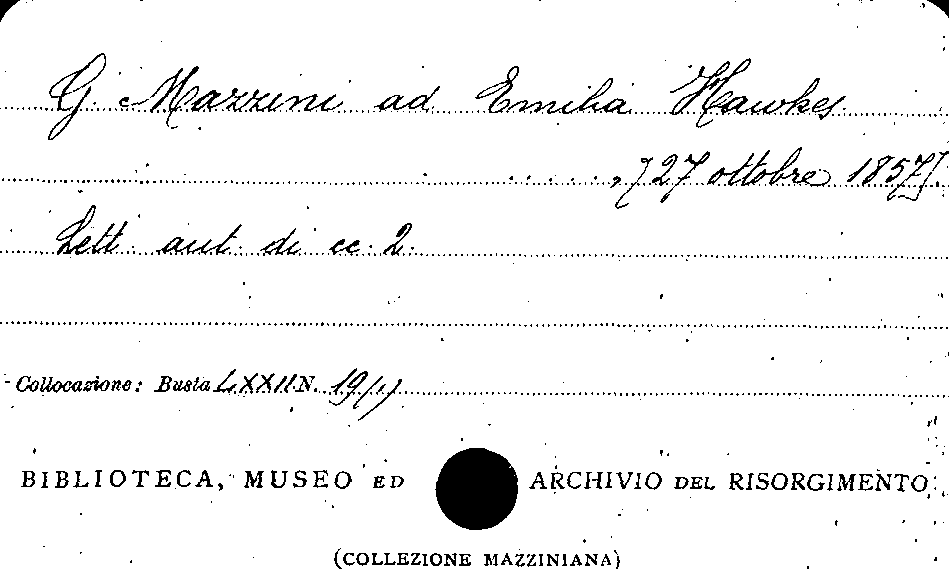 G. Mazzini ad Emilia Hawkes
....., [27 ottobre 1857].
Lett. aut. di cc. 2.
Collocazione: Busta LXXII N. 19/(1)
BIBLIOTECA, MUSEO ED ARCHIVIO DEL RISORGIMENTO
(COLLEZIONE MAZZINIANA)